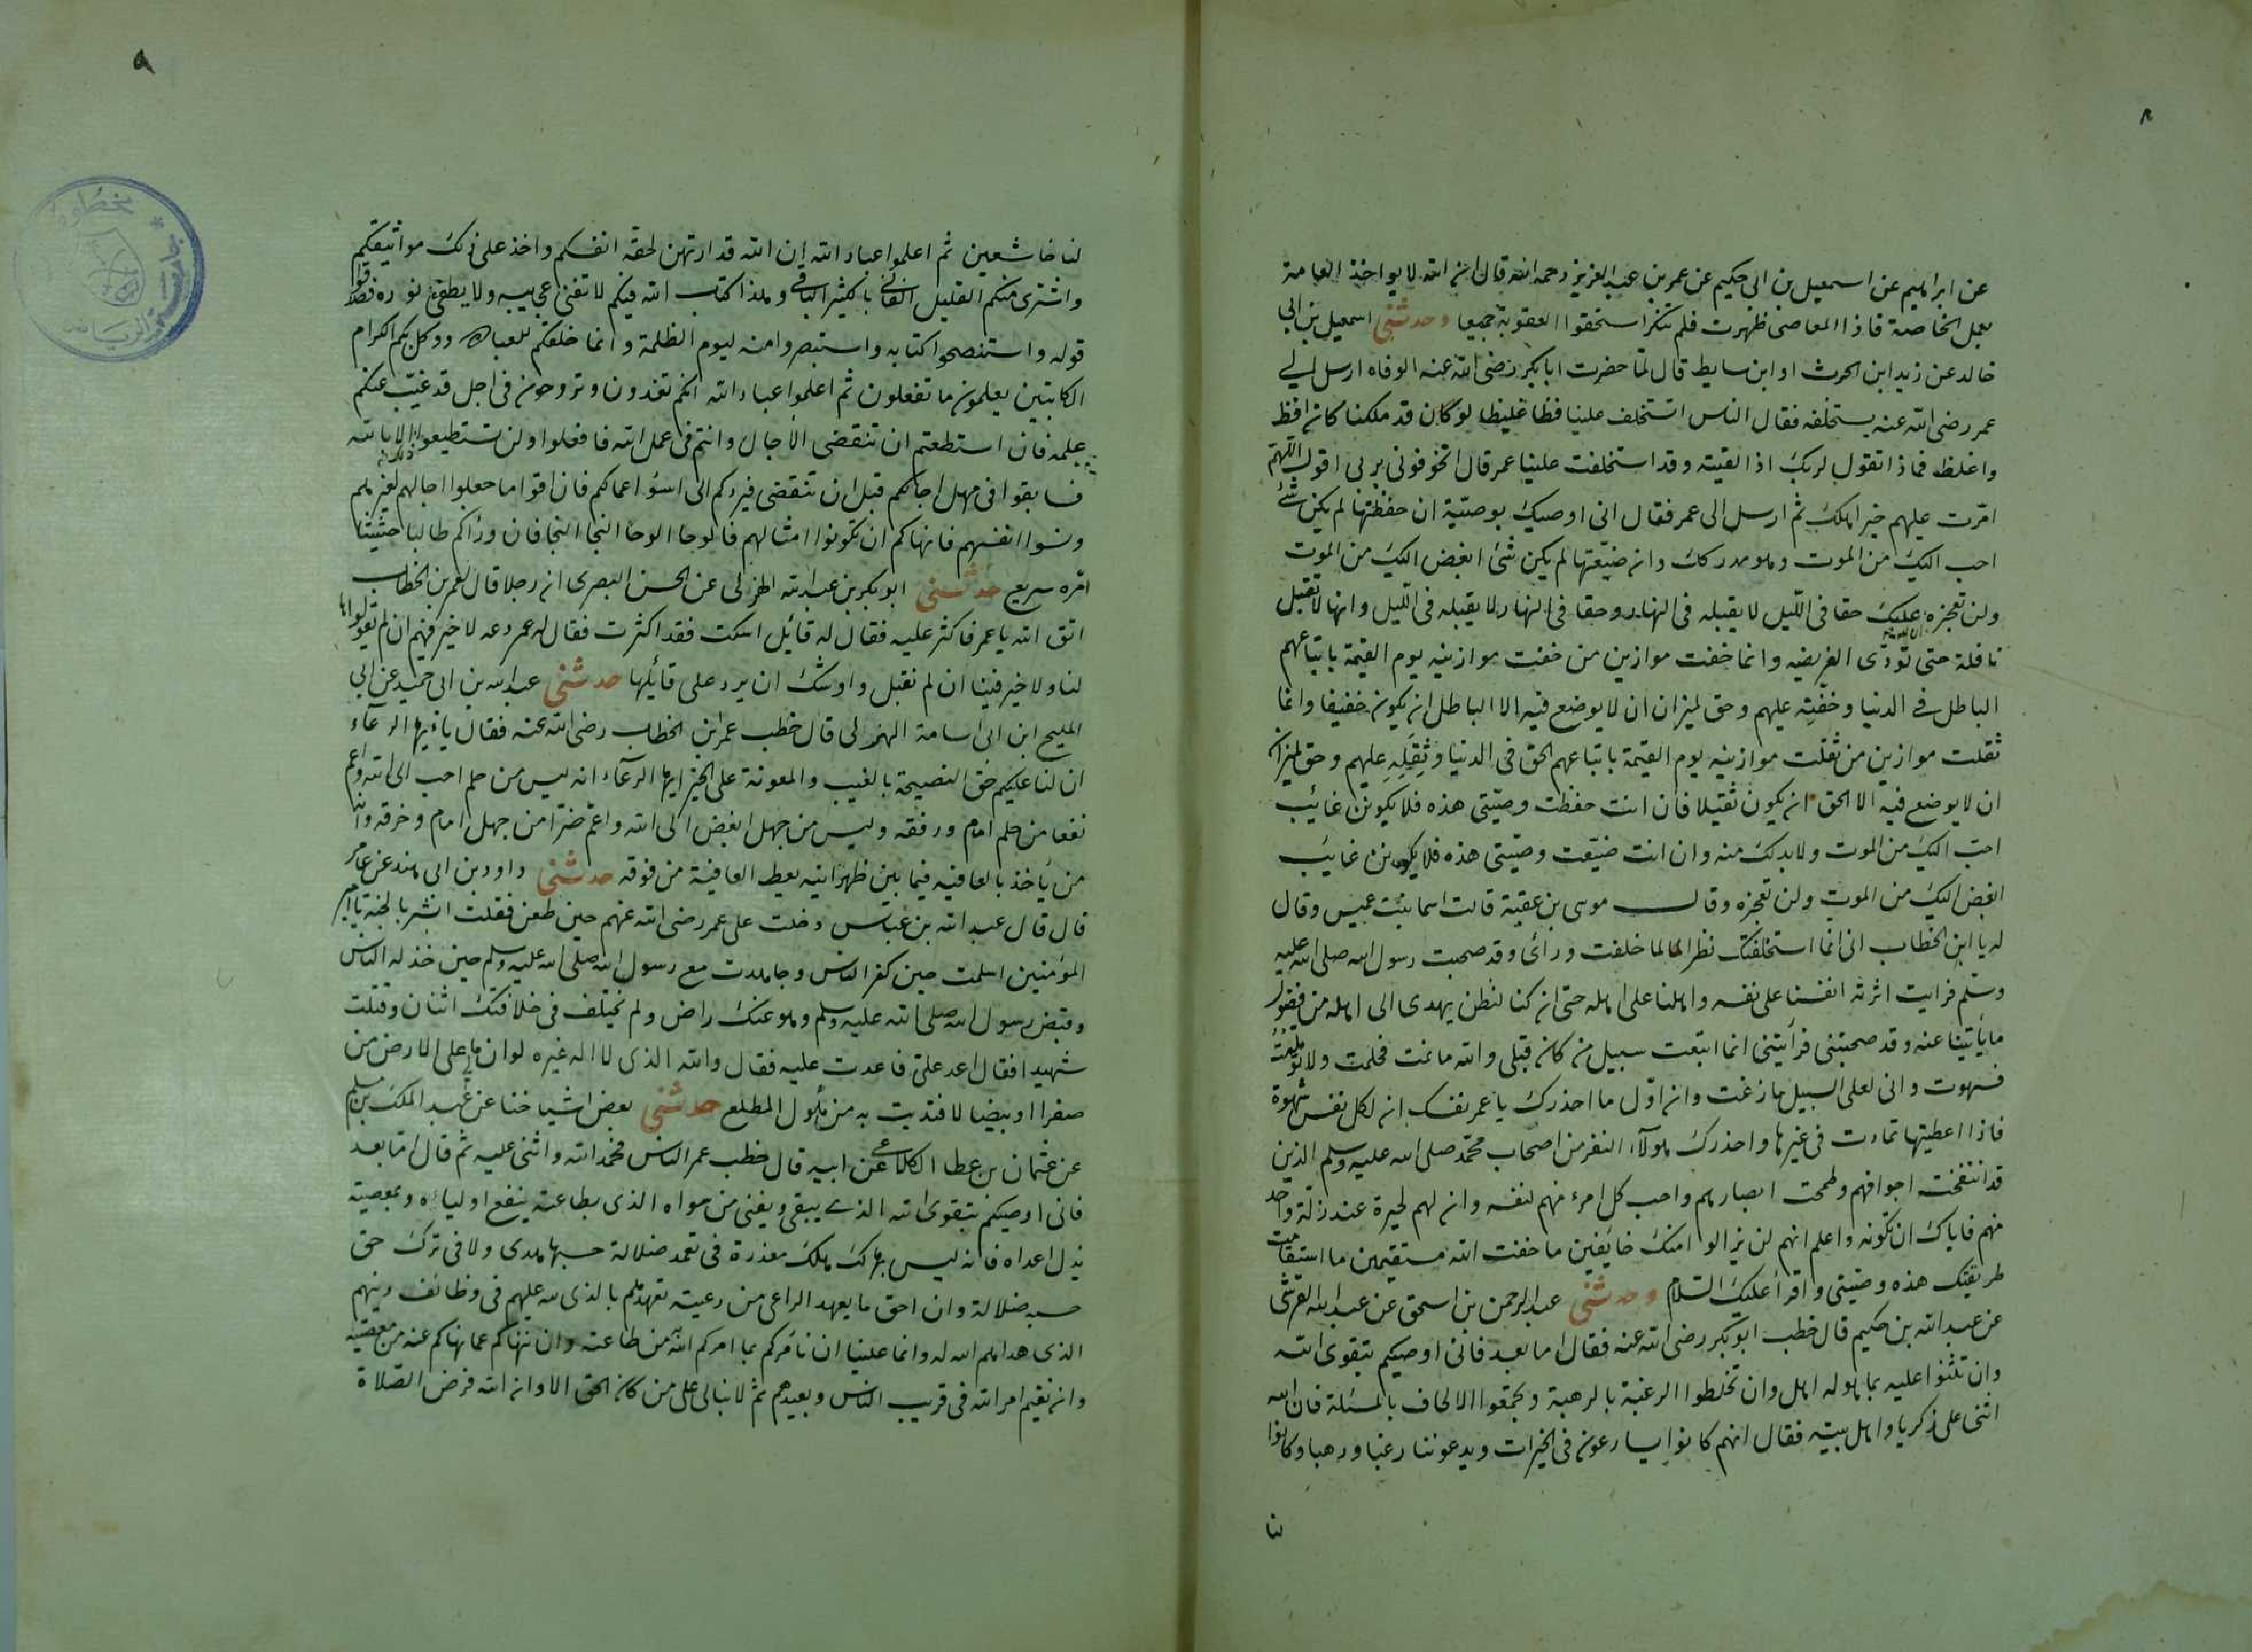 ٨
عن ابراهيم عن اسمعيل بن ابى حكيم عن عمر بن عبد العزيز رحمه الله قال ان الله لا يواخذ العامة
بعمل الخاصة فاذا المعاصى ظهرت فلم تنكر استحقوا العقوبة جميعا وحدثنى اسمعيل بن ابى
خالد عن زيد ابن الحرث او ابن سابط قال لما حضرت ابا بكر رضى الله عنه الوفاه ارسل الى
عمر رضى الله عنه يستخلفه فقال الناس استخلف علينا فظا غليظا لو كان قد ملكنا كان افظ
واغلظ فماذا تقول لربك اذا لقيته وقد استخلفت علينا عمر قال اتخوفونى بربى اقول اللهم
امّرت عليهم خير اهلك ثم ارسل الى عمر فقال انى اوصيك بوصيّة ان حفظتها لم يكن شئ
احب اليك من الموت وهو مدركك وان ضيّعتها لم يكن شئ ابغض اليك من الموت
ولن تعجزه عليك حقا فى اللّيل لا يقبله فى النهار وحقا فى النهار لا يقبله فى اللّيل وانها لا تقبل
نافلة حتى تؤدّى الفريضه وانما خفت موازين من خفت موازينه يوم القيمة باتباعهم
الباطل فى الدنيا وخفّته عليهم وحق لميزان ان لا يوضع فيه الا الباطل ان يكون خفيفا وانما
ثقلت موازين من ثقلت موازينه يوم القيمة باتباعهم الحق فى الدنيا وثقله عليهم وحق لميزان
ان لا يوضع فيه الا الحق ان يكون ثقيلا فان انت حفظت وصيّتى هذه فلا يكونن غائب
احبّ اليك من الموت ولا بد لك منه وان انت ضيّعت وصيّتى هذه فلا يكونن غايب
ابغض اليك من الموت ولن تعجزه وقال موسى بن عقبة قالت اسما بنت عميس وقال
له يا ابن الخطاب انى انما استخلفتك نظرا لما خلفت ورائى وقد صحبت رسول الله صلى الله عليه
وسلّم فرايت اثرته انفسنا على نفسه واهلنا على اهله حتى ان كنا لنظل يهدى الى اهله من فضول
ما ياتينا عنه وقد صحبتنى فرأيتنى انما اتبعت سبيل من كان قبلى والله ما نمت فحلمت ولا توهمت
فسهوت وانى لعلى السبيل ما زغت وان اوّل ما احذرك يا عمر نفسك ان لكل نفس شهوة
فاذا اعطيتها تمادت فى غيرها واحذرك هولآء النفر من اصحاب محمّد صلى الله عليه وسلم الذين
قد انتفخت اجوافهم وطمحت ابصارهم واحب كل امرء منهم لنفسه وان لهم لحيرة عند زلّة واحد
منهم فاياك ان تكونه واعلم انهم لن يزالوا منك خايفين ما خفت الله مستقيمين ما استقامت
طريقتك هذه وصيّتى واقرأ عليك السّلام وحدثنى عبد الرحمن بن اسحق عن عبد الله القرشى
عن عبد الله بن حكيم قال خطب ابو بكر رضى الله عنه فقال اما بعد فانى اوصيكم بتقوى الله
وان تثنوا عليه بما هو له اهل وان تخلطوا الرغبة بالرهبة وتجمعوا الالحاف بالمسئلة فان الله
اثنى على زكريا واهل بيته فقال انهم كانوا يسارعون فى الخيرات ويدعوننا رغبا ورهبا وكانوا
لنا
٩
لنا خاشعين ثم اعلموا عباد الله ان الله قد ارتهن لحقّه انفسكم واخذ على ذلك مواثيقكم
واشترى منكم القليل الفانى بالكثير الباقى وهذا كتاب الله فيكم لا تفنى عجايبه ولا يطفى نوره فصدقوا
قوله واستنصحوا كتابه واستبصروا منه ليوم الظلمة وانما خلقكم للعباده ووكل بكم الكرام
الكاتبين يعلمون ما تفعلون ثم اعلموا عباد الله انكم تغدون وتروحون فى اجل قد غيّب عنكم
علمه فان استطعتم ان تنقضى الآجال وانتم فى عمل الله فافعلوا ولن تستطيعوا ذلك الا بالله
فسابقوا فى مهل اجالكم قبل ان تنقضى فيردكم الى اسوء اعمالكم فان اقواما جعلوا اجالهم لغيرهم
ونسوا انفسهم فانهاكم ان تكونوا امثالهم فالوحا الوحا النجا النجا فان ورأكم طالبا حثيثا
امّره سريع حدثنى ابو بكر بن عبد الله الهزلى عن الحسن البصرى ان رجلا قال لعمر بن الخطاب
اتق الله يا عمر فاكثر عليه فقال له قائل اسكت فقد اكثرت فقال له عمر دعه لا خير فيهم ان لم يقولوها
لنا ولا خير فينا ان لم نقبل واوشك ان يرد على قائلها حدثنى عبد الله بن ابى حميد عن ابى
المليح ابن ابى اسامة الهزلى قال خطب عمر ابن الخطاب رضى الله عنه فقال يا ايها الرعآء
ان لنا عليكم حق النصيحة بالغيب والمعونة على الخير ايها الرعآء انه ليس من حلم احب الى الله واعم
نفعا من حلم امام ورفقه وليس من جهل ابغض الى الله واعمّ ضرّا من جهل امام وخرقه وانه
من يأخذ بالعافيه فيما بين ظهرانيه يعط العافية من فوقه حدثنى داود بن ابى هند عن عامر
قال قال عبد الله بن عباس دخلت على عمر رضى الله عنهم حين طعن فقلت ابشر بالجنة يا امير
المؤمنين اسلمت حين كفر الناس وجاهدت مع رسول الله صلى الله عليه وسلم حين خذله الناس
وقبض رسول الله صلى الله عليه وسلم وهو عنك راض ولم يختلف فى خلافتك اثنان وقتلت
شهيدا فقال اعد علىّ فاعدت عليه فقال والله الذى لا اله غيره لو ان ما على الارض من
صفرا او بيضا لافتديت به من هول المطلع حدثنى بعض اشياخنا عن عبد الملك بن مسلم
عن عثمان بن عطا الكلاعى عن ابيه قال خطب عمر الناس فحمد الله واثنى عليه ثم قال امّا بعد
فانى اوصيكم بتقوى الله الذى يبقى ويفنى من سواه الذى بطاعته ينفع اولياءه وبمعصيته
يذل اعداه فانه ليس بهالك هلك معذرة فى تعمد ضلالة حسبها هدى ولا فى ترك حق
حسبه ضلالة وان احق ما يعهد الراعى من رعيته تعهدهم بالذى لله عليهم فى وظائف دينهم
الذى هداهم الله له وانما علينا ان نأمركم بما امركم الله من طاعته وان ننهاكم عما نهاكم عنه من معصيته
وان نقيم امر الله فى قريب الناس وبعيدهم ثم لا نبالى على من كان الحق الا وان الله فرض الصّلاة